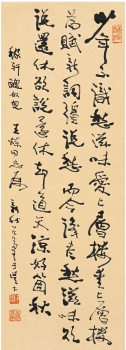 少年不識愁滋味愛上層樓愛上層樓
為賦新詞強說愁而今識盡愁滋味欲
說還休欲說還休却道天涼好箇秋
稼軒醜奴兒